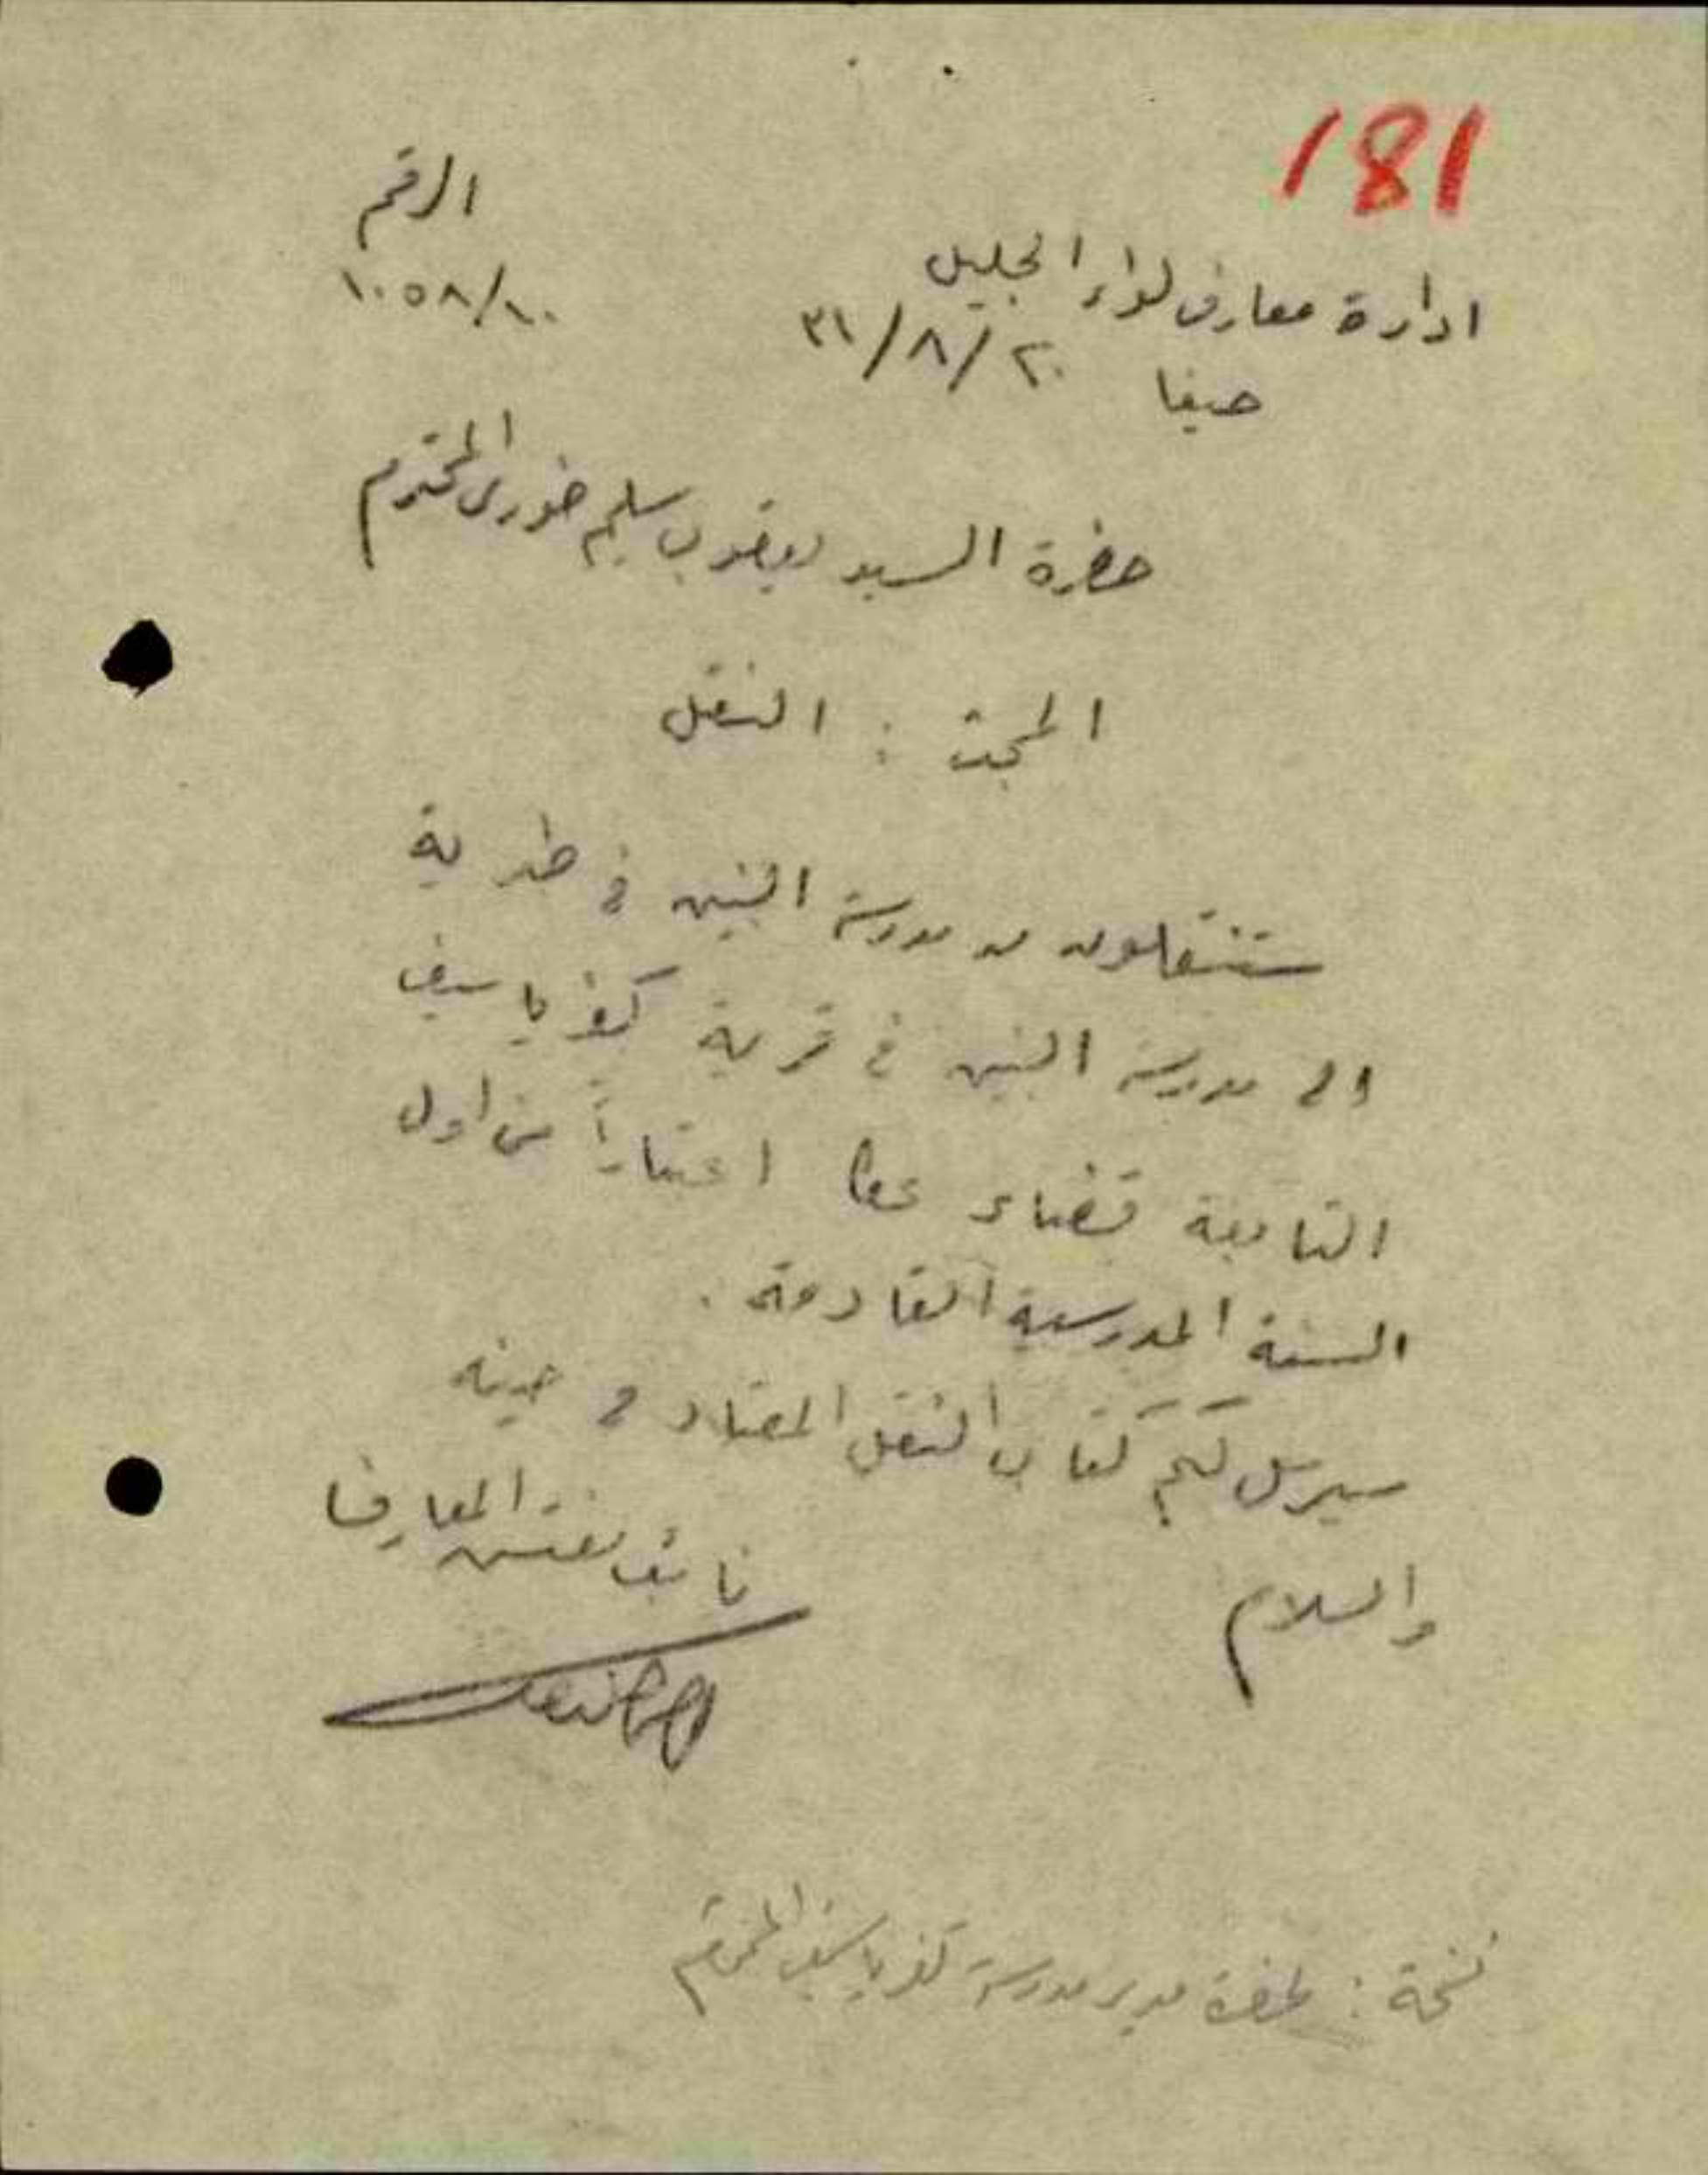 181
الرقم
١٠٥٨/١٠
ادارة معارف لواء الجليل
حيفا ٢٠/٨/٣١
حضرة السيد يعقوب سليم خوري المحترم
المبحث : النقل
ستنقلون من مدرسة البنين في طبرية
الى مدرسة البنين في قرية كفر ياسيف
التابعة قضاء عكا اعتباراً من اول
السنة المدرسية القادمة .
سيرسل لكم كتاب النقل المعتاد في حينه
والسلام
نائب مفتش المعارف
نسخة : لحضرة مدير مدرسة كفر ياسيف المحترم